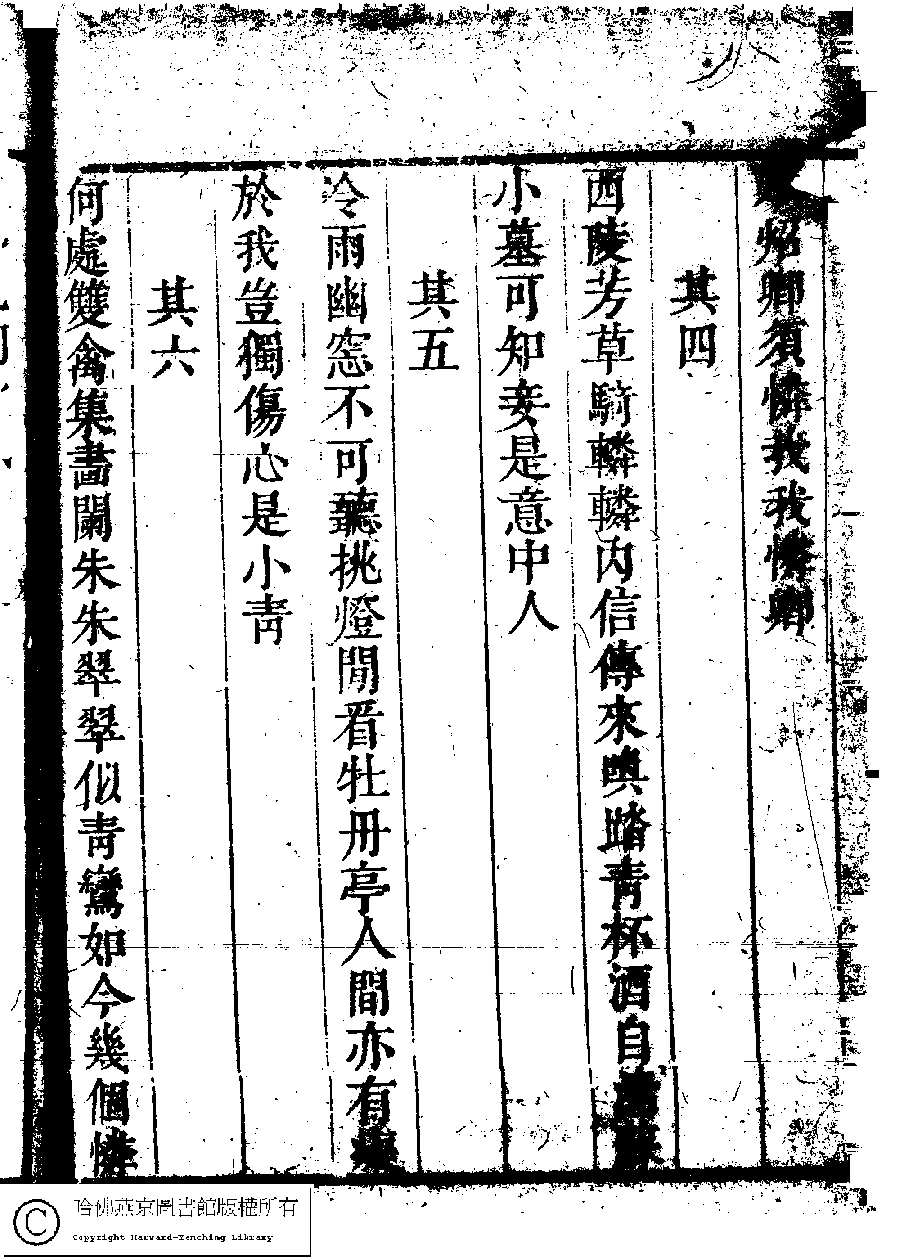 卿須憐我我憐卿
其四
西陵芳草騎轔轔內信傳來喚踏靑杯酒自
小墓可知妾是意中人
其五
冷雨幽窓不可聽挑燈閒看牡丹亭人間亦有癡
於我豈獨傷心是小靑
其六
何處雙禽集畵闌朱朱翠翠似靑鸞如今幾個憐
哈佛燕京圖書館版權所有
Copyright Harvard-Yenching Library